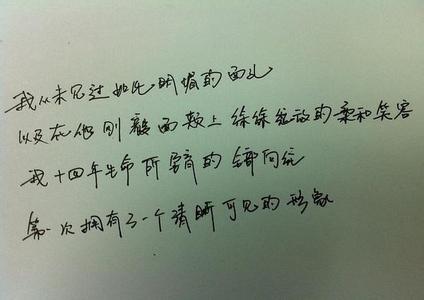 我从未见过如此明媚的面孔
以及在他刚毅面颊上徐徐绽放的柔和笑容
我十四年生命所穿有的全部向往
第一次拥有了一个清晰可见的形象